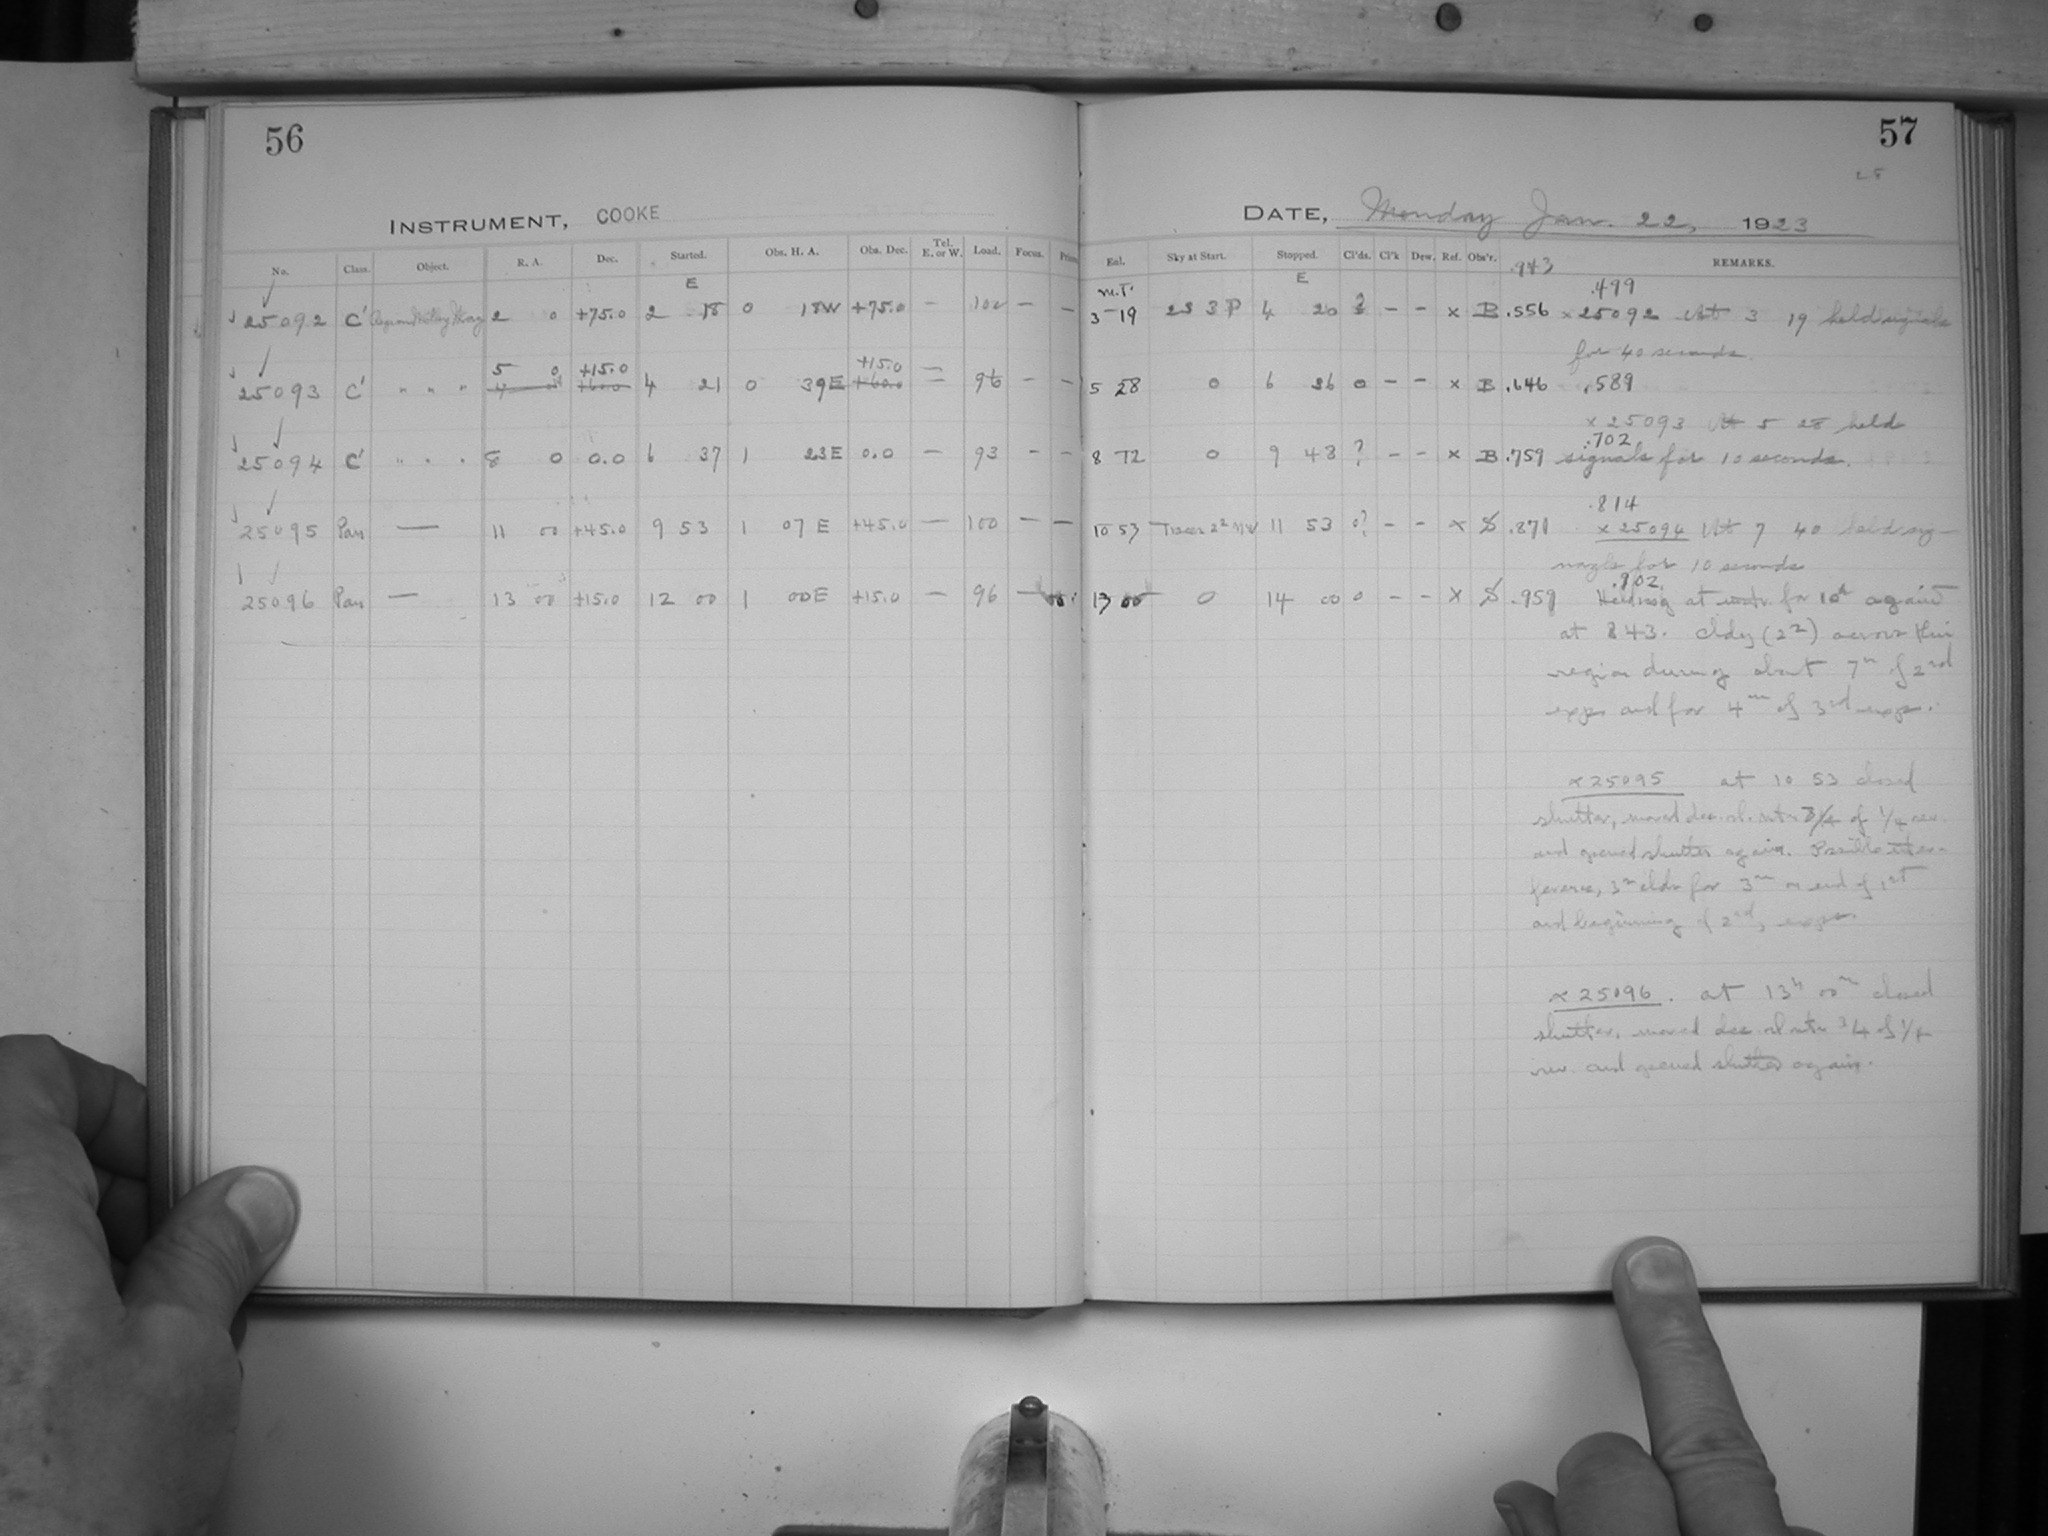 56
INSTRUMENT, COOKE
No. Class. Object. R. A. Dec. Started. Obs. H. A. Obs. Dec. Tel. E. or W. Load. Focus.
E
25092 C' 2 0 +75.0 2 18 0 18W +75.0 — 100 — —
5 0 +15.0 +15.0
25093 C' " " " 4 0 +60.0 4 21 0 39E +60.0 — 96 — —
25094 C' " " " 8 0 0.0 6 37 1 23E 0.0 — 93 — —
25095 Pan — 11 00 +45.0 9 53 1 07 E +45.0 — 100 — —
25096 Pan — 13 00 +15.0 12 00 1 00E +15.0 — 96 —
57
DATE, Monday Jan. 22, 1923
Sky at Start. Stopped. Cl'ds. Cl'k Dew. Ref. Obs'r. .943 REMARKS.
M.T. E .499
3-19 4 20 — — x B .556 x 25092 At 3 19 held signals
for 40 seconds.
5 28 0 6 36 0 — — x B .646 .589
x 25093 At 5 28 held
.702
0 9 43 ? — — x B .759 signals for 10 seconds.
.814
10 53 11 53 0? — — x .871 x 25094 At 7 40 held sig-
nals for 10 seconds
.902
13 00 0 14 00 0 — — x .959 at for 10s again
at 843. cldy (2²) across this
region during about 7m of 2nd
exp. and for 4m of 3rd exp.
x 25095 at 10 53 closed
shutter, moved dec. 3/4 of 1/4 rev.
and opened shutter again. Possible
for 3m on end of 1st
and beginning of 2nd, exps.
x 25096. at 13h 00m closed
shutter, moved dec 3/4 of 1/4
rev. and opened shutter again.